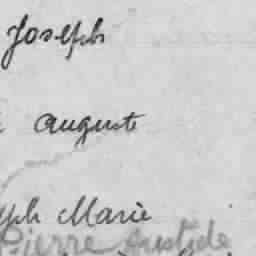 Joseph
auguste
eph Marie
Pierre Aristide